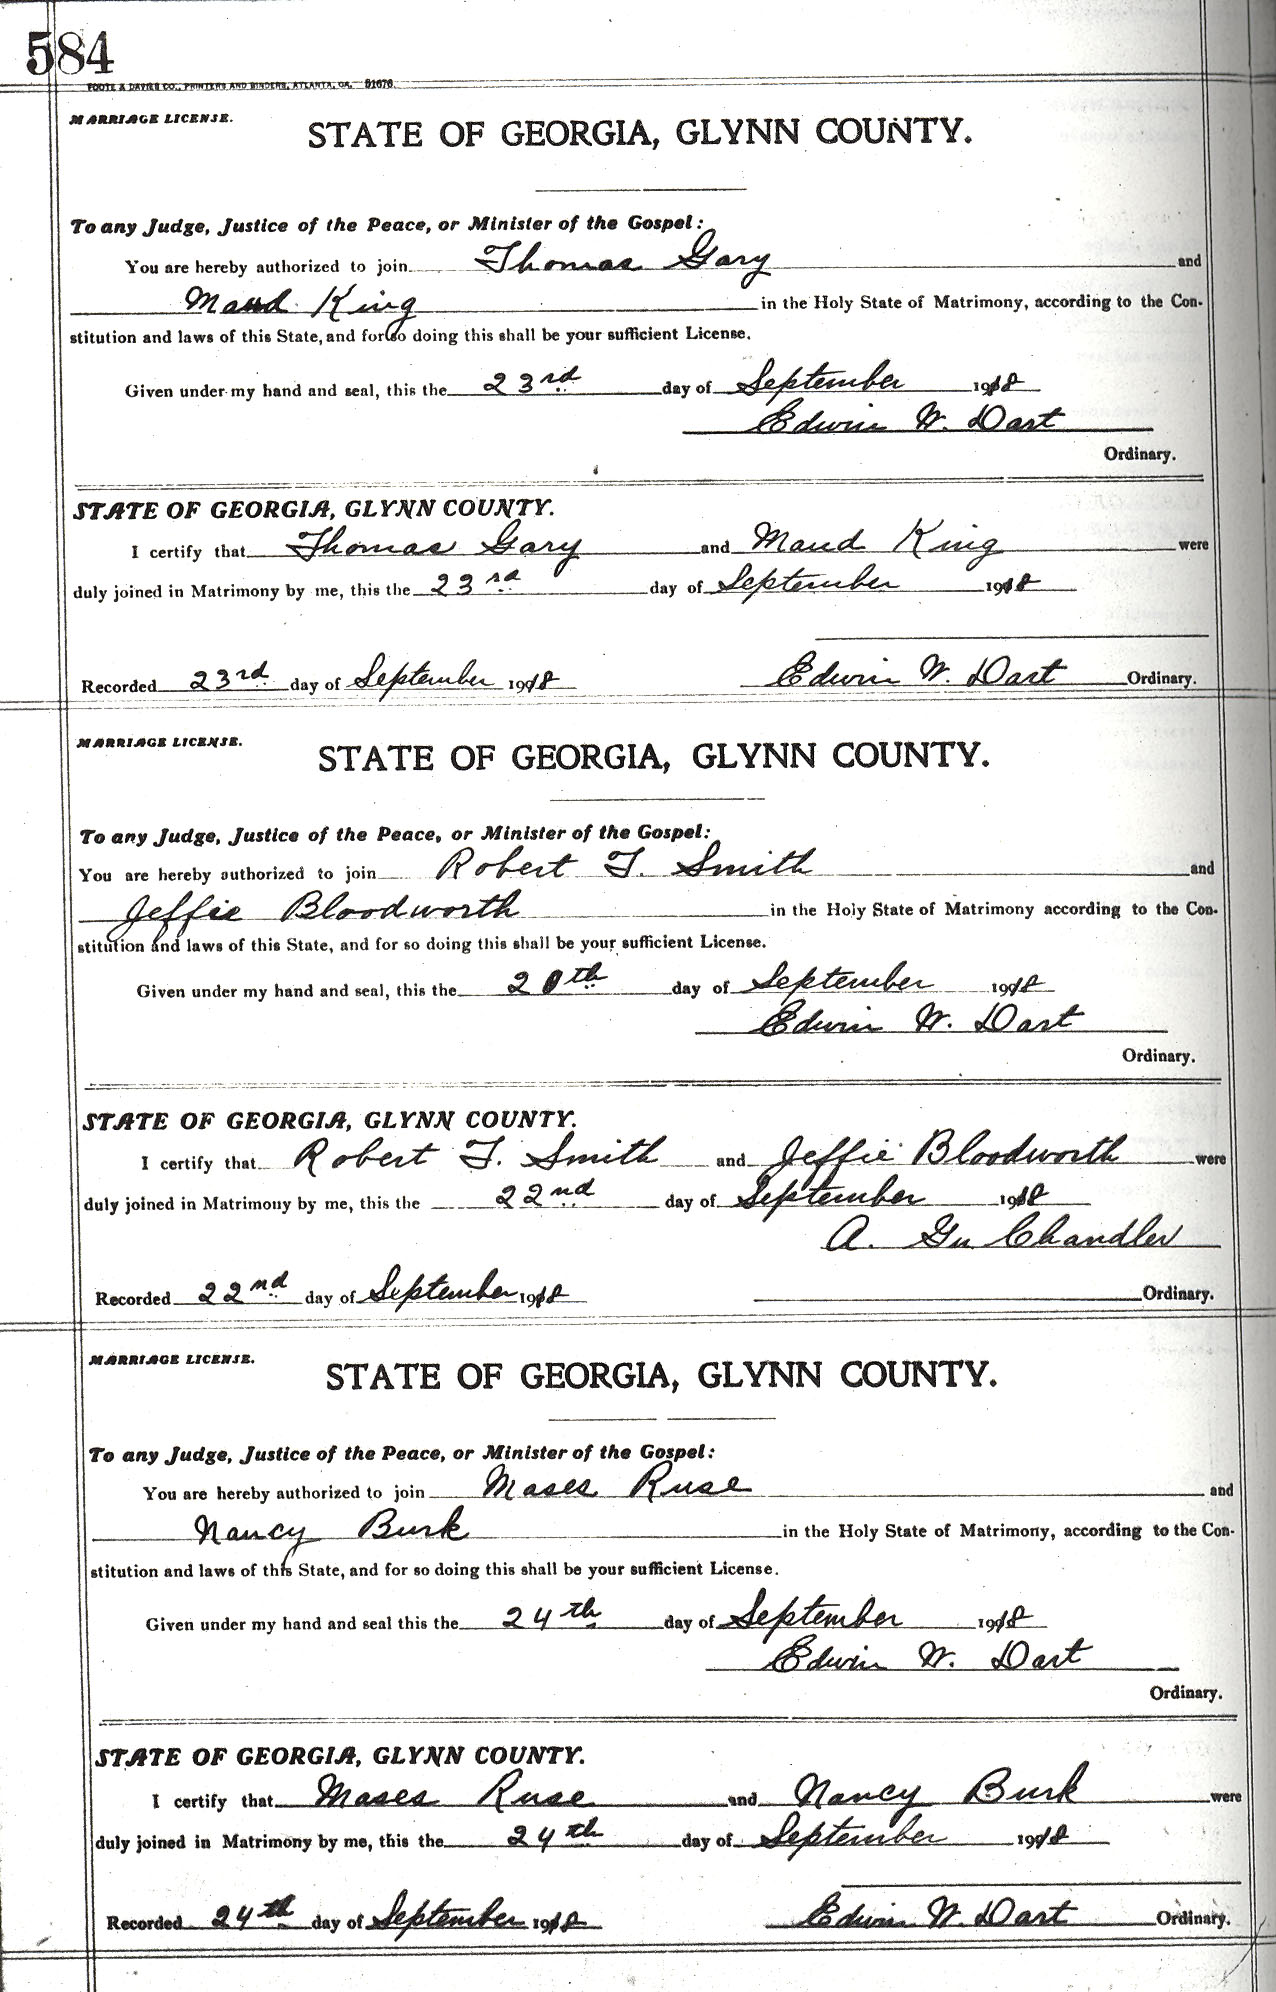 584
FOOTE & DAVIES CO., PRINTERS AND BINDERS, ATLANTA, GA. 91676
MARRIAGE LICENSE.
STATE OF GEORGIA, GLYNN COUNTY.
To any Judge, Justice of the Peace, or Minister of the Gospel:
You are hereby authorized to join Thomas Gary and
Maud King in the Holy State of Matrimony, according to the Con-
stitution and laws of this State, and for so doing this shall be your sufficient License.
Given under my hand and seal, this the 23rd day of September 1918
Edwin W. Dart
Ordinary.
STATE OF GEORGIA, GLYNN COUNTY.
I certify that Thomas Gary and Maud King were
duly joined in Matrimony by me, this the 23rd day of September 1918
Recorded 23rd day of September 1918 Edwin W. Dart Ordinary.
MARRIAGE LICENSE.
STATE OF GEORGIA, GLYNN COUNTY.
To any Judge, Justice of the Peace, or Minister of the Gospel:
You are hereby authorized to join Robert T. Smith and
Jeffie Bloodworth in the Holy State of Matrimony according to the Con-
stitution and laws of this State, and for so doing this shall be your sufficient License.
Given under my hand and seal, this the 20th day of September 1918
Edwin W. Dart
Ordinary.
STATE OF GEORGIA, GLYNN COUNTY.
I certify that Robert T. Smith and Jeffie Bloodworth were
duly joined in Matrimony by me, this the 22nd day of September 1918
A. Chandler
Recorded 22nd day of September 1918 Ordinary.
MARRIAGE LICENSE.
STATE OF GEORGIA, GLYNN COUNTY.
To any Judge, Justice of the Peace, or Minister of the Gospel:
You are hereby authorized to join Moses Ruse and
Nancy Burk in the Holy State of Matrimony, according to the Con-
stitution and laws of this State, and for so doing this shall be your sufficient License.
Given under my hand and seal this the 24th day of September 1918
Edwin W. Dart
Ordinary.
STATE OF GEORGIA, GLYNN COUNTY.
I certify that Moses Ruse and Nancy Burk were
duly joined in Matrimony by me, this the 24th day of September 1918
Recorded 24th day of September 1918 Edwin W. Dart Ordinary.